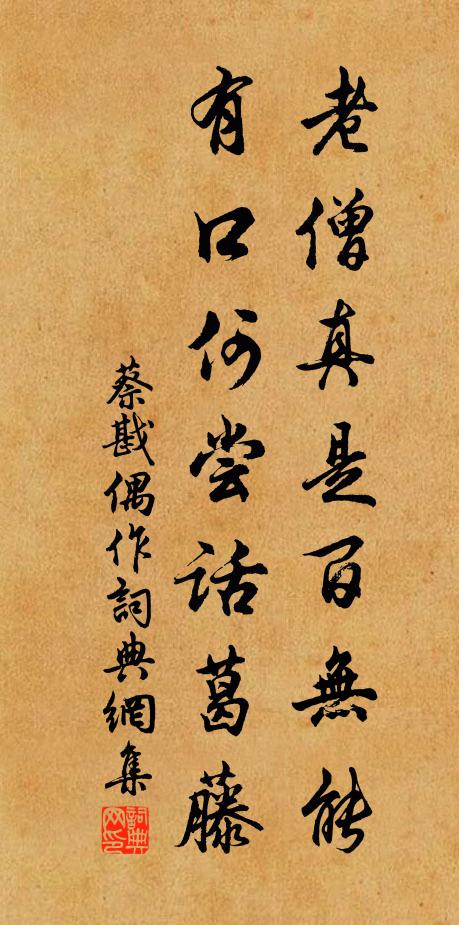 老僧真是百無能
有口何尝話葛藤
蔡戡偶作詞典網集
詞典网印